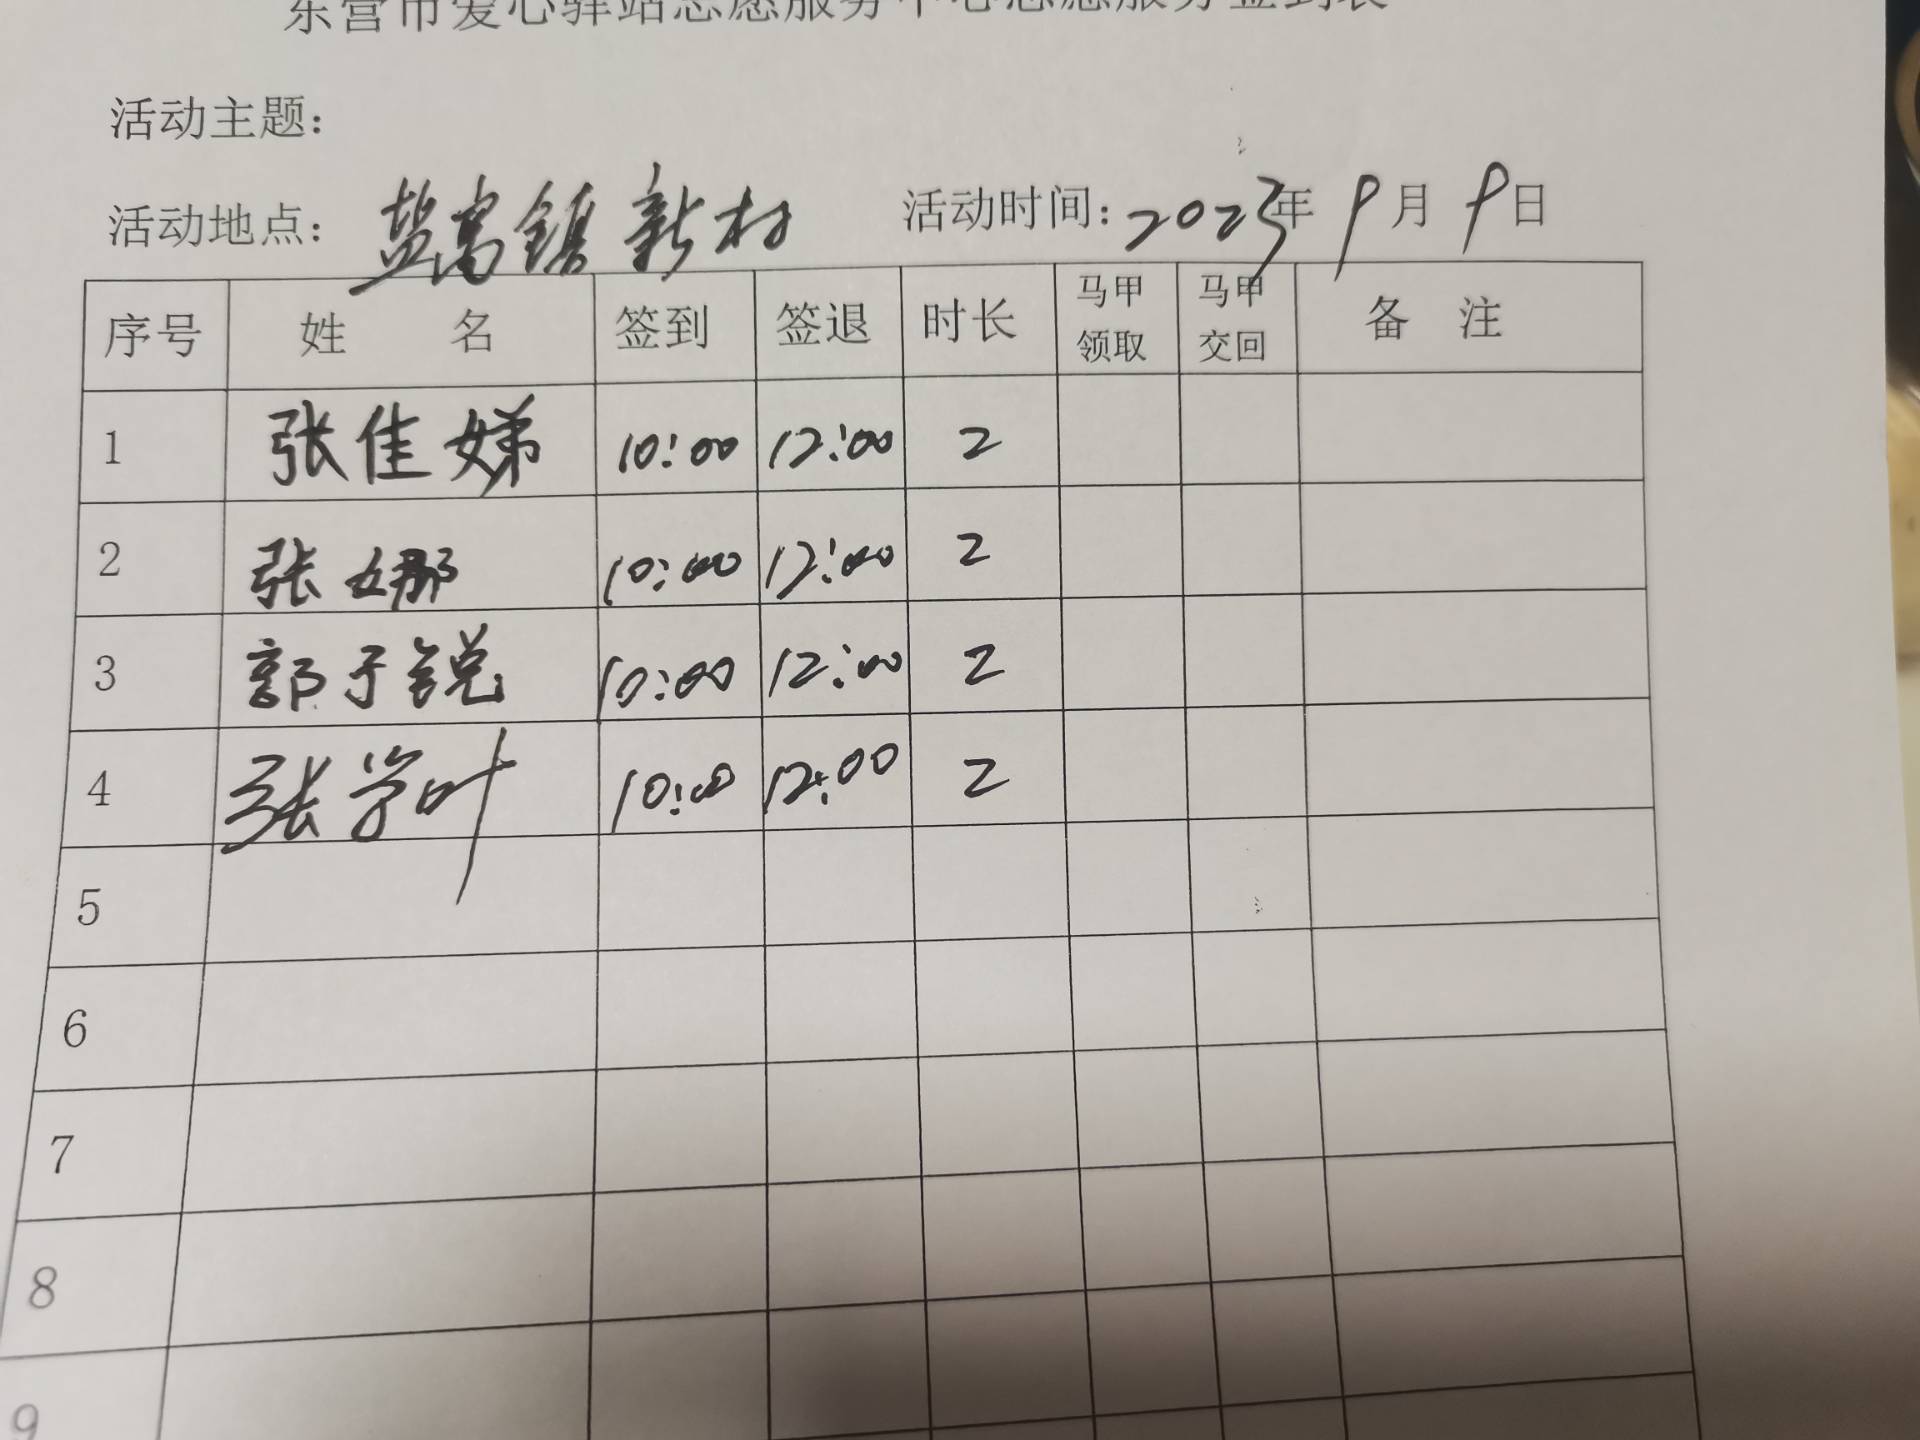 东营市爱心驿站志愿服务中心志愿服务签到表
活动主题:
活动地点: 盐窝镇新村 活动时间: 2023年 9月 9日
序号 姓 名 签到 签退 时长 马甲领取 马甲交回 备 注
1 张佳娣 10:00 12:00 2
2 张娜 10:00 12:00 2
3 郭于锐 10:00 12:00 2
4 张学叶 10:00 12:00 2
5
6
7
8
9